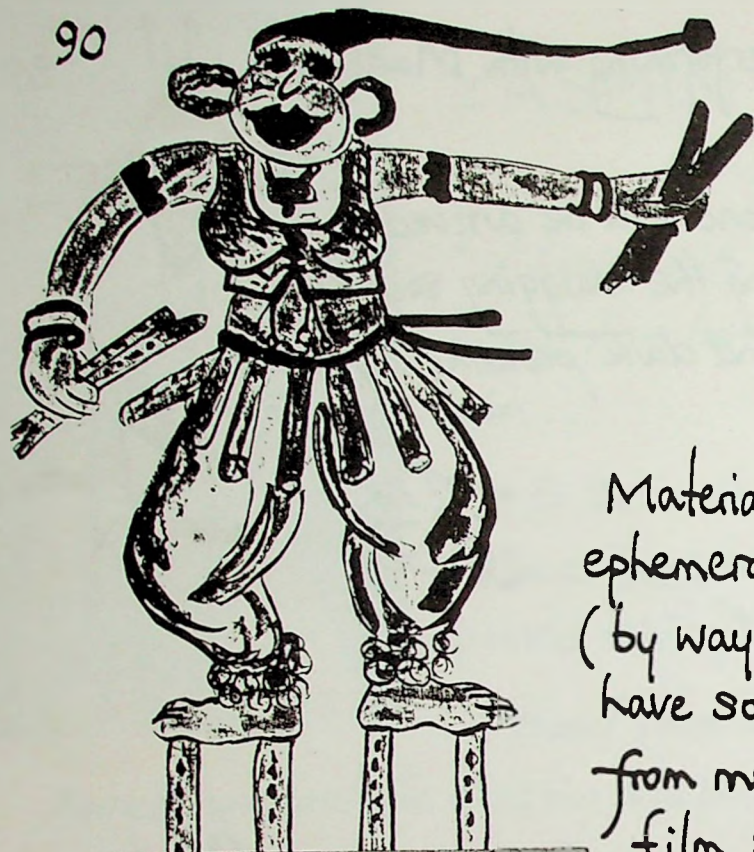 90
Materia
ephemer
(by way
have so
from m
film